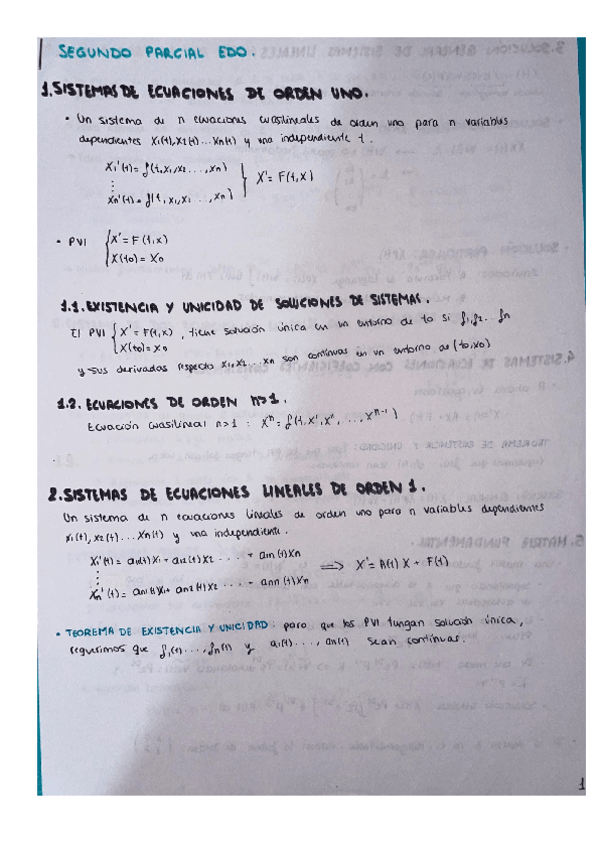 SEGUNDO PARCIAL EDO.
1. SISTEMAS DE ECUACIONES DE ORDEN UNO.
• Un sistema de n ecuaciones cuasilineales de orden uno para n variables
dependientes x₁(t), x₂(t)... xₙ(t) y una independiente t.
x₁'(t) = f(t, x₁, x₂ ..., xₙ)
⋮ } X' = F(t, X)
xₙ'(t) = f(t, x₁, x₂ ..., xₙ)
• PVI { X' = F(t, x)
X(t₀) = X₀
1.1. EXISTENCIA Y UNICIDAD DE SOLUCIONES DE SISTEMAS.
El PVI { X' = F(t, x) , tiene solución única en un entorno de t₀ si f₁, f₂... fₙ
X(t₀) = X₀
y sus derivadas respecto x₁, x₂... xₙ son continuas en un entorno de (t₀, x₀)
1.2. ECUACIONES DE ORDEN n>1.
Ecuación cuasilineal n>1 : xⁿ = f(t, x', x'', ... xⁿ⁻¹)
2. SISTEMAS DE ECUACIONES LINEALES DE ORDEN 1.
Un sistema de n ecuaciones lineales de orden uno para n variables dependientes
x₁(t), x₂(t)... xₙ(t) y una independiente.
x₁'(t) = a₁₁(t)x₁ + a₁₂(t)x₂ ... + a₁ₙ(t)xₙ
⋮ ⟹ X' = A(t) X + F(t)
xₙ'(t) = aₙ₁(t)x₁ + aₙ₂(t)x₂ ... + aₙₙ(t)xₙ
• TEOREMA DE EXISTENCIA Y UNICIDAD: para que los PVI tengan solución única,
requerimos que f₁(t)..., fₙ(t) y a₁(t)..., aₙ(t) sean continuas.
1